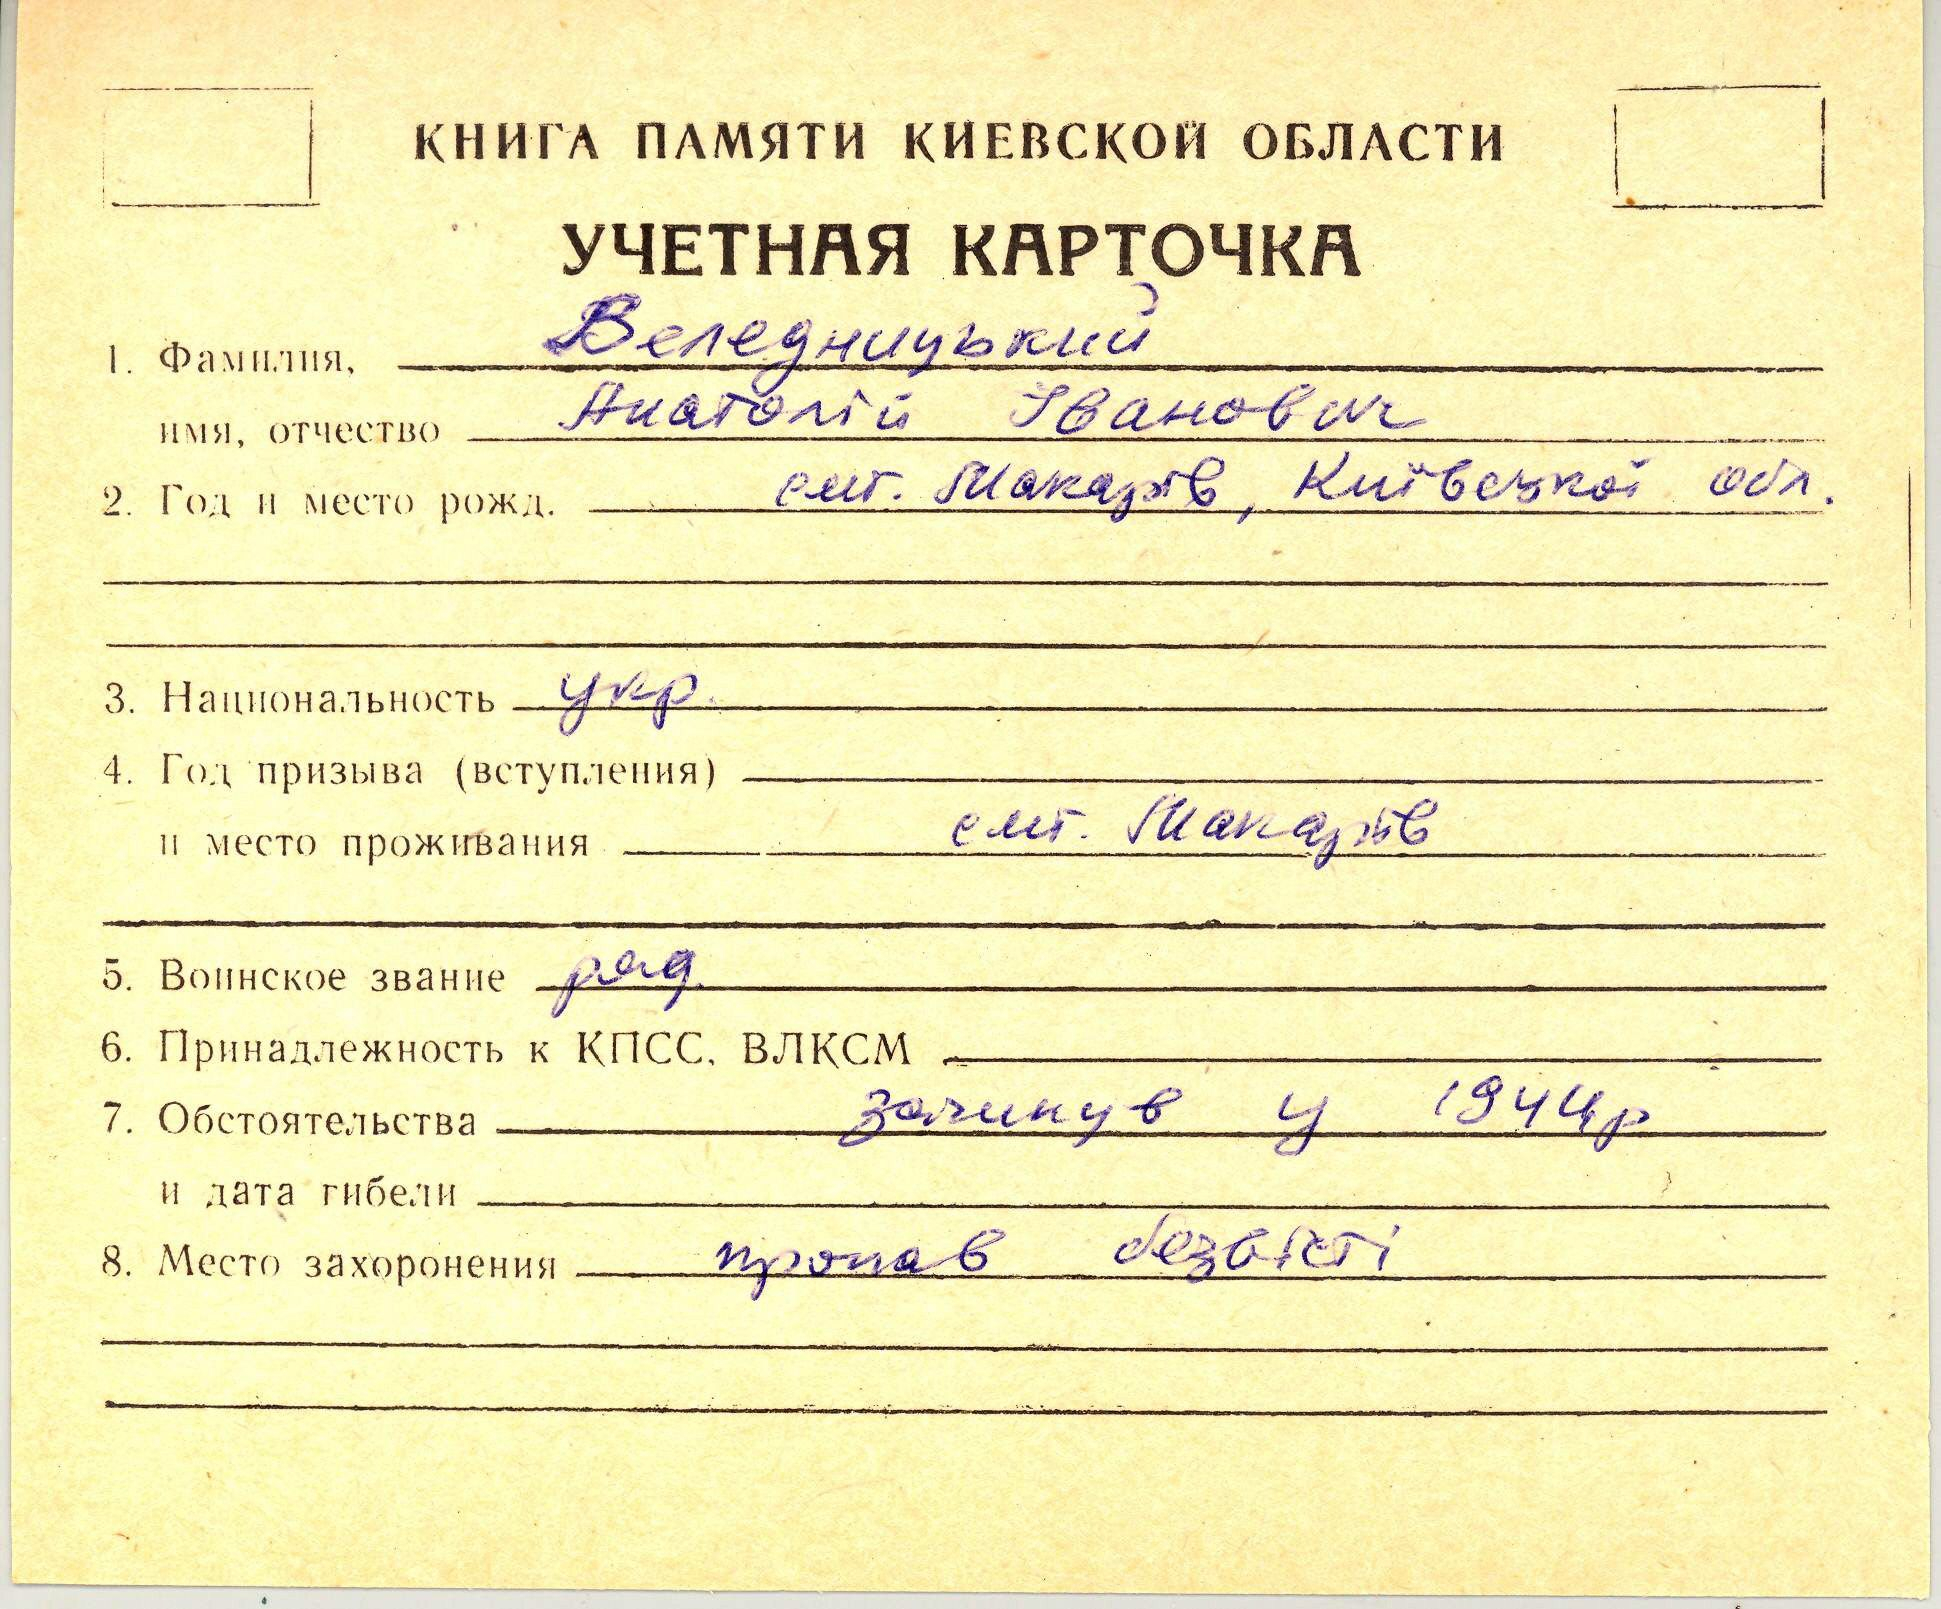 КНИГА ПАМЯТИ КИЕВСКОЙ ОБЛАСТИ
УЧЕТНАЯ КАРТОЧКА
1. Фамилия, Веледницький
имя, отчество Анатолій Іванович
2. Год и место рожд. смт. Макарів, Київської обл.
3. Национальность укр.
4. Год призыва (вступления)
и место проживания смт. Макарів
5. Воинское звание ряд.
6. Принадлежность к КПСС, ВЛКСМ
7. Обстоятельства загинув у 1944р
и дата гибели
8. Место захоронения пропав безвісті